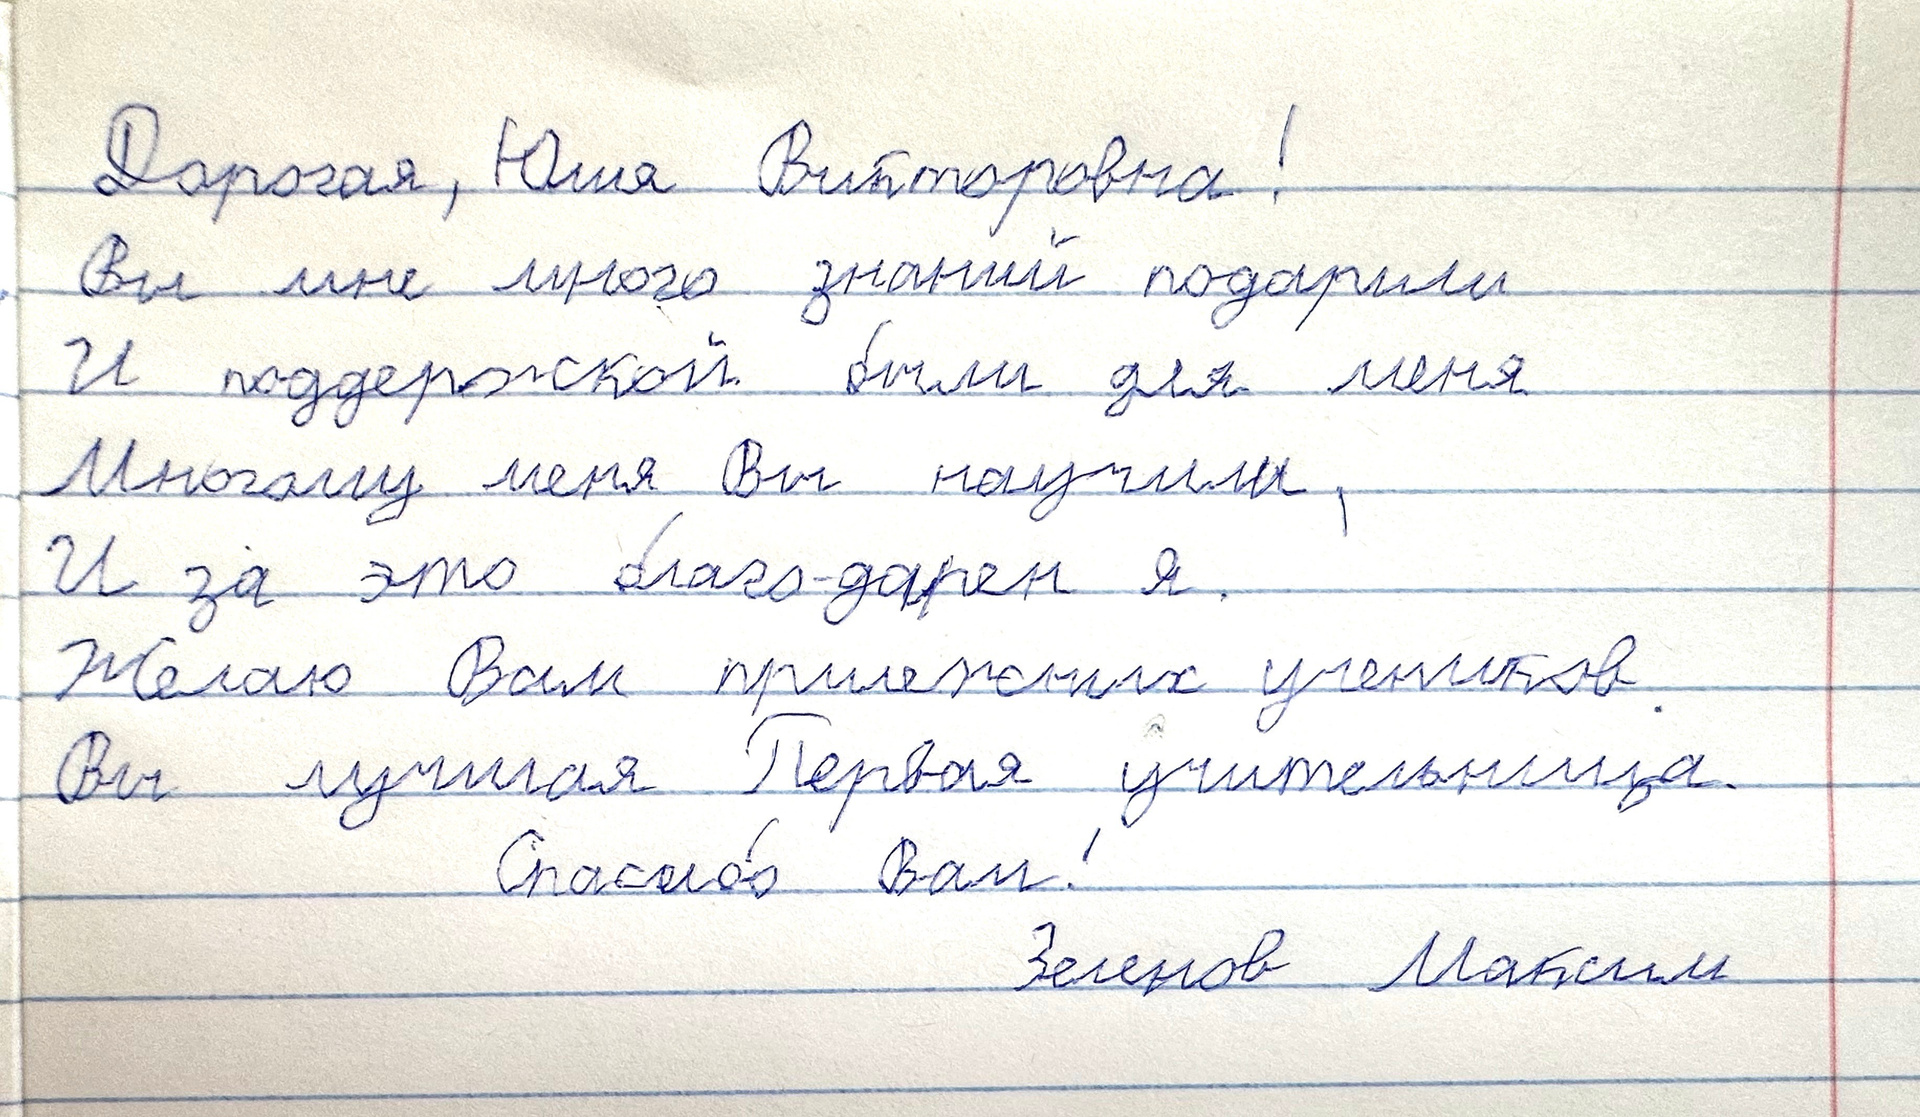 Дорогая, Юлия Викторовна!
Вы мне много знаний подарили
И поддержкой были для меня
Многому меня Вы научили,
И за это благо-дарен я.
Желаю Вам прилежных учеников.
Вы лучшая Первая учительница.
Спасибо Вам!
Зеленов Максим